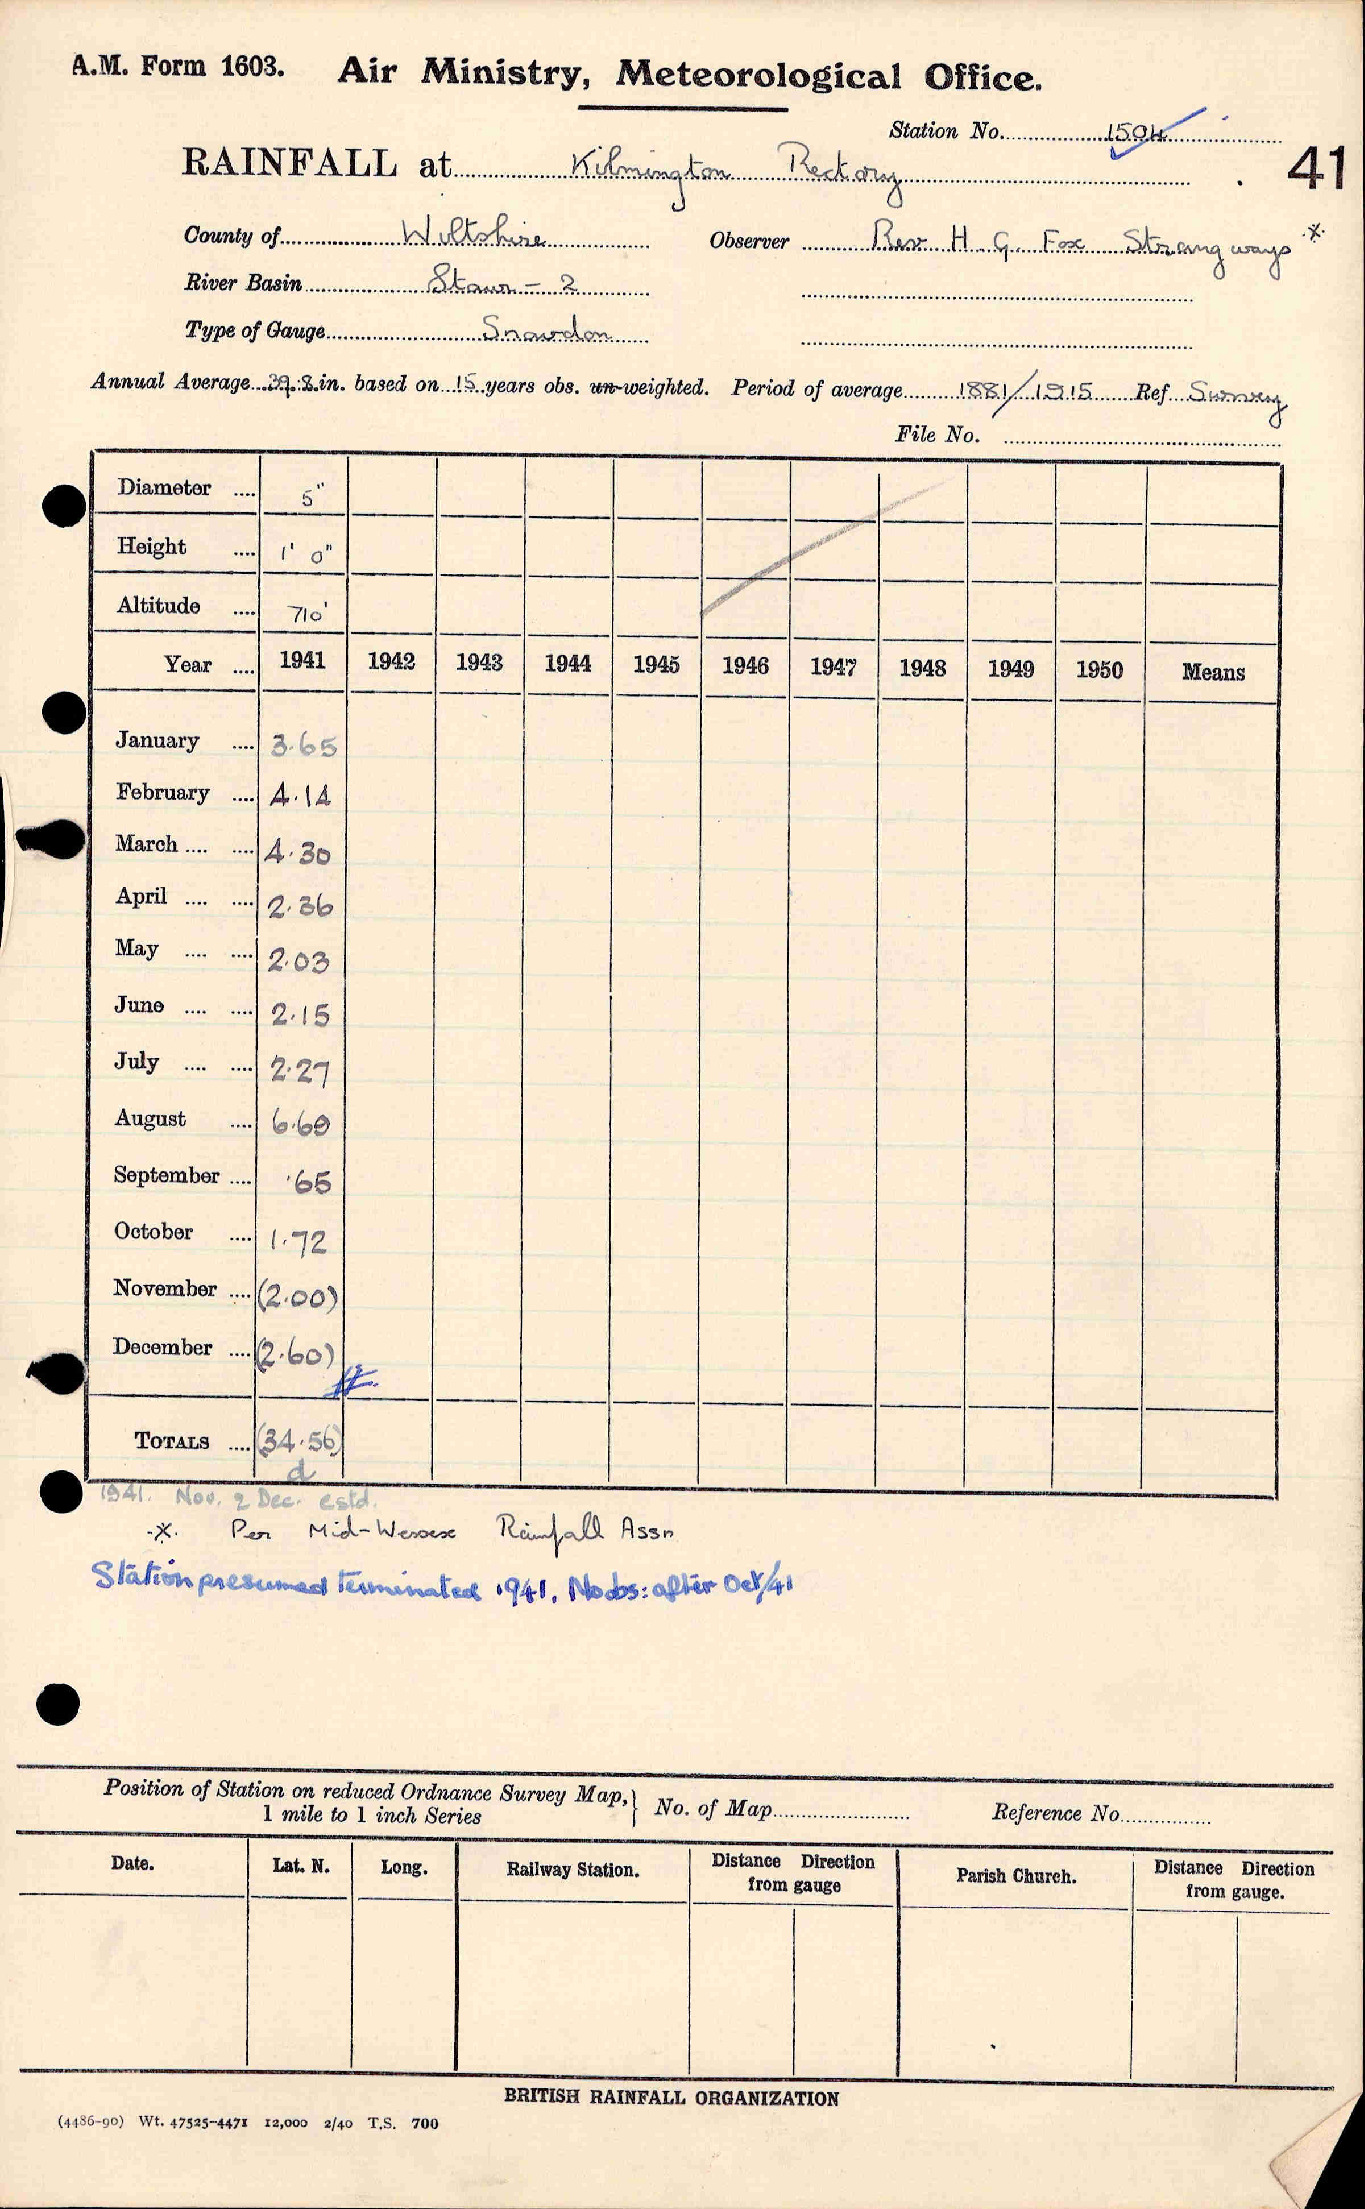 A.M. Form 1603. Air Ministry, Meteorological Office.
Station No. 1504
RAINFALL at Kilmington Rectory
41
County of Wiltshire Observer Rev H. G. Fox Strangways *
River Basin Stour - 2
Type of Gauge Snowdon
Annual Average 39.8 in. based on 15 years obs. un-weighted. Period of average 1881/1915 Ref Survey
File No.
Diameter .... 5"
Height .... 1' 0"
Altitude .... 710'
Year .... 1941 1942 1943 1944 1945 1946 1947 1948 1949 1950 Means
January .... 3.65
February .... 4.14
March .... .... 4.30
April .... .... 2.36
May .... .... 2.03
June .... .... 2.15
July .... .... 2.27
August .... 6.69
September .... .65
October .... 1.72
November .... (2.00)
December .... (2.60)
TOTALS .... (34.56)
d
1941. Nov. & Dec. estd.
* Per Mid-Wessex Rainfall Assn
Station presumed terminated 1941. No obs: after Oct/41
Position of Station on reduced Ordnance Survey Map, } No. of Map Reference No.
1 mile to 1 inch Series
Date. Lat. N. Long. Railway Station. Distance Direction from gauge Parish Church. Distance Direction from gauge.
BRITISH RAINFALL ORGANIZATION
(4486-90) Wt. 47525-4471 12,000 2/40 T.S. 700